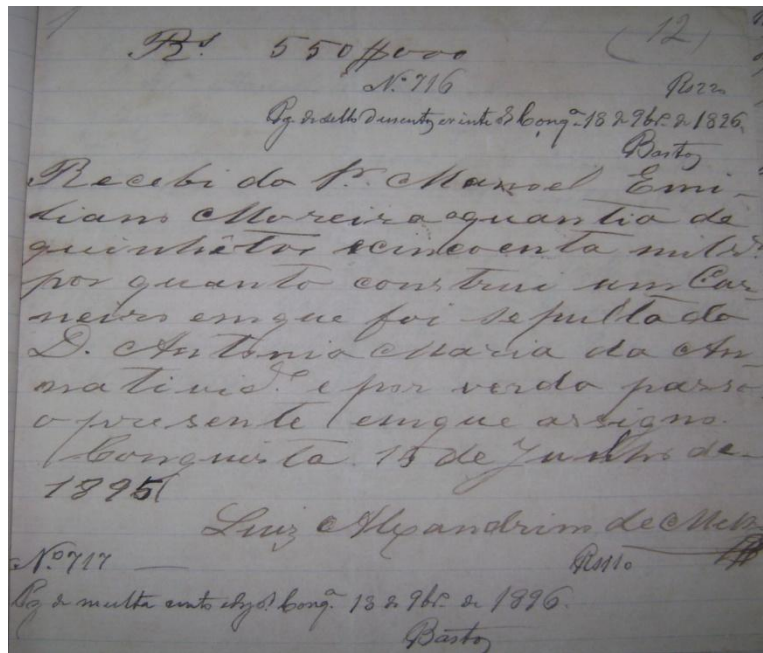 (12)
Rs. 550$000
N.º 716 R220
Pg. de sello duzentos e vinte rs. Conqª. 18 de 9br. de 1896.
Bastos
Recebi do Sr. Manoel Emi-
liano Moreira a quantia de
quinhêtos e cincoenta mil rs.
por quanto construi um Car-
neiro em que foi sepultada
D. Antonia Maria da An-
nativid.e e por verda passo
o presente em que assigno.
Conquista 15 de Junho de
1895
Luiz Alexandrino de Mello
N.º 717 R110
Pg. de multa cento e dez rs. Conqª. 18 de 9br. de 1896.
Bastos